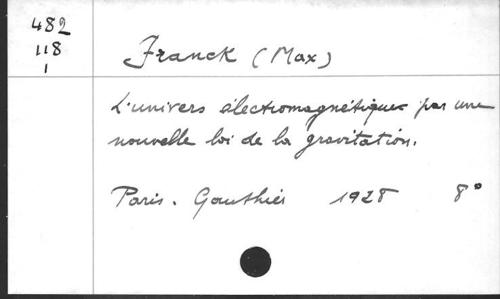 482
118
1
Franck (Max)
L'univers électromagnétique par une
nouvelle loi de la gravitation.
Paris. Gauthier 1928 8°